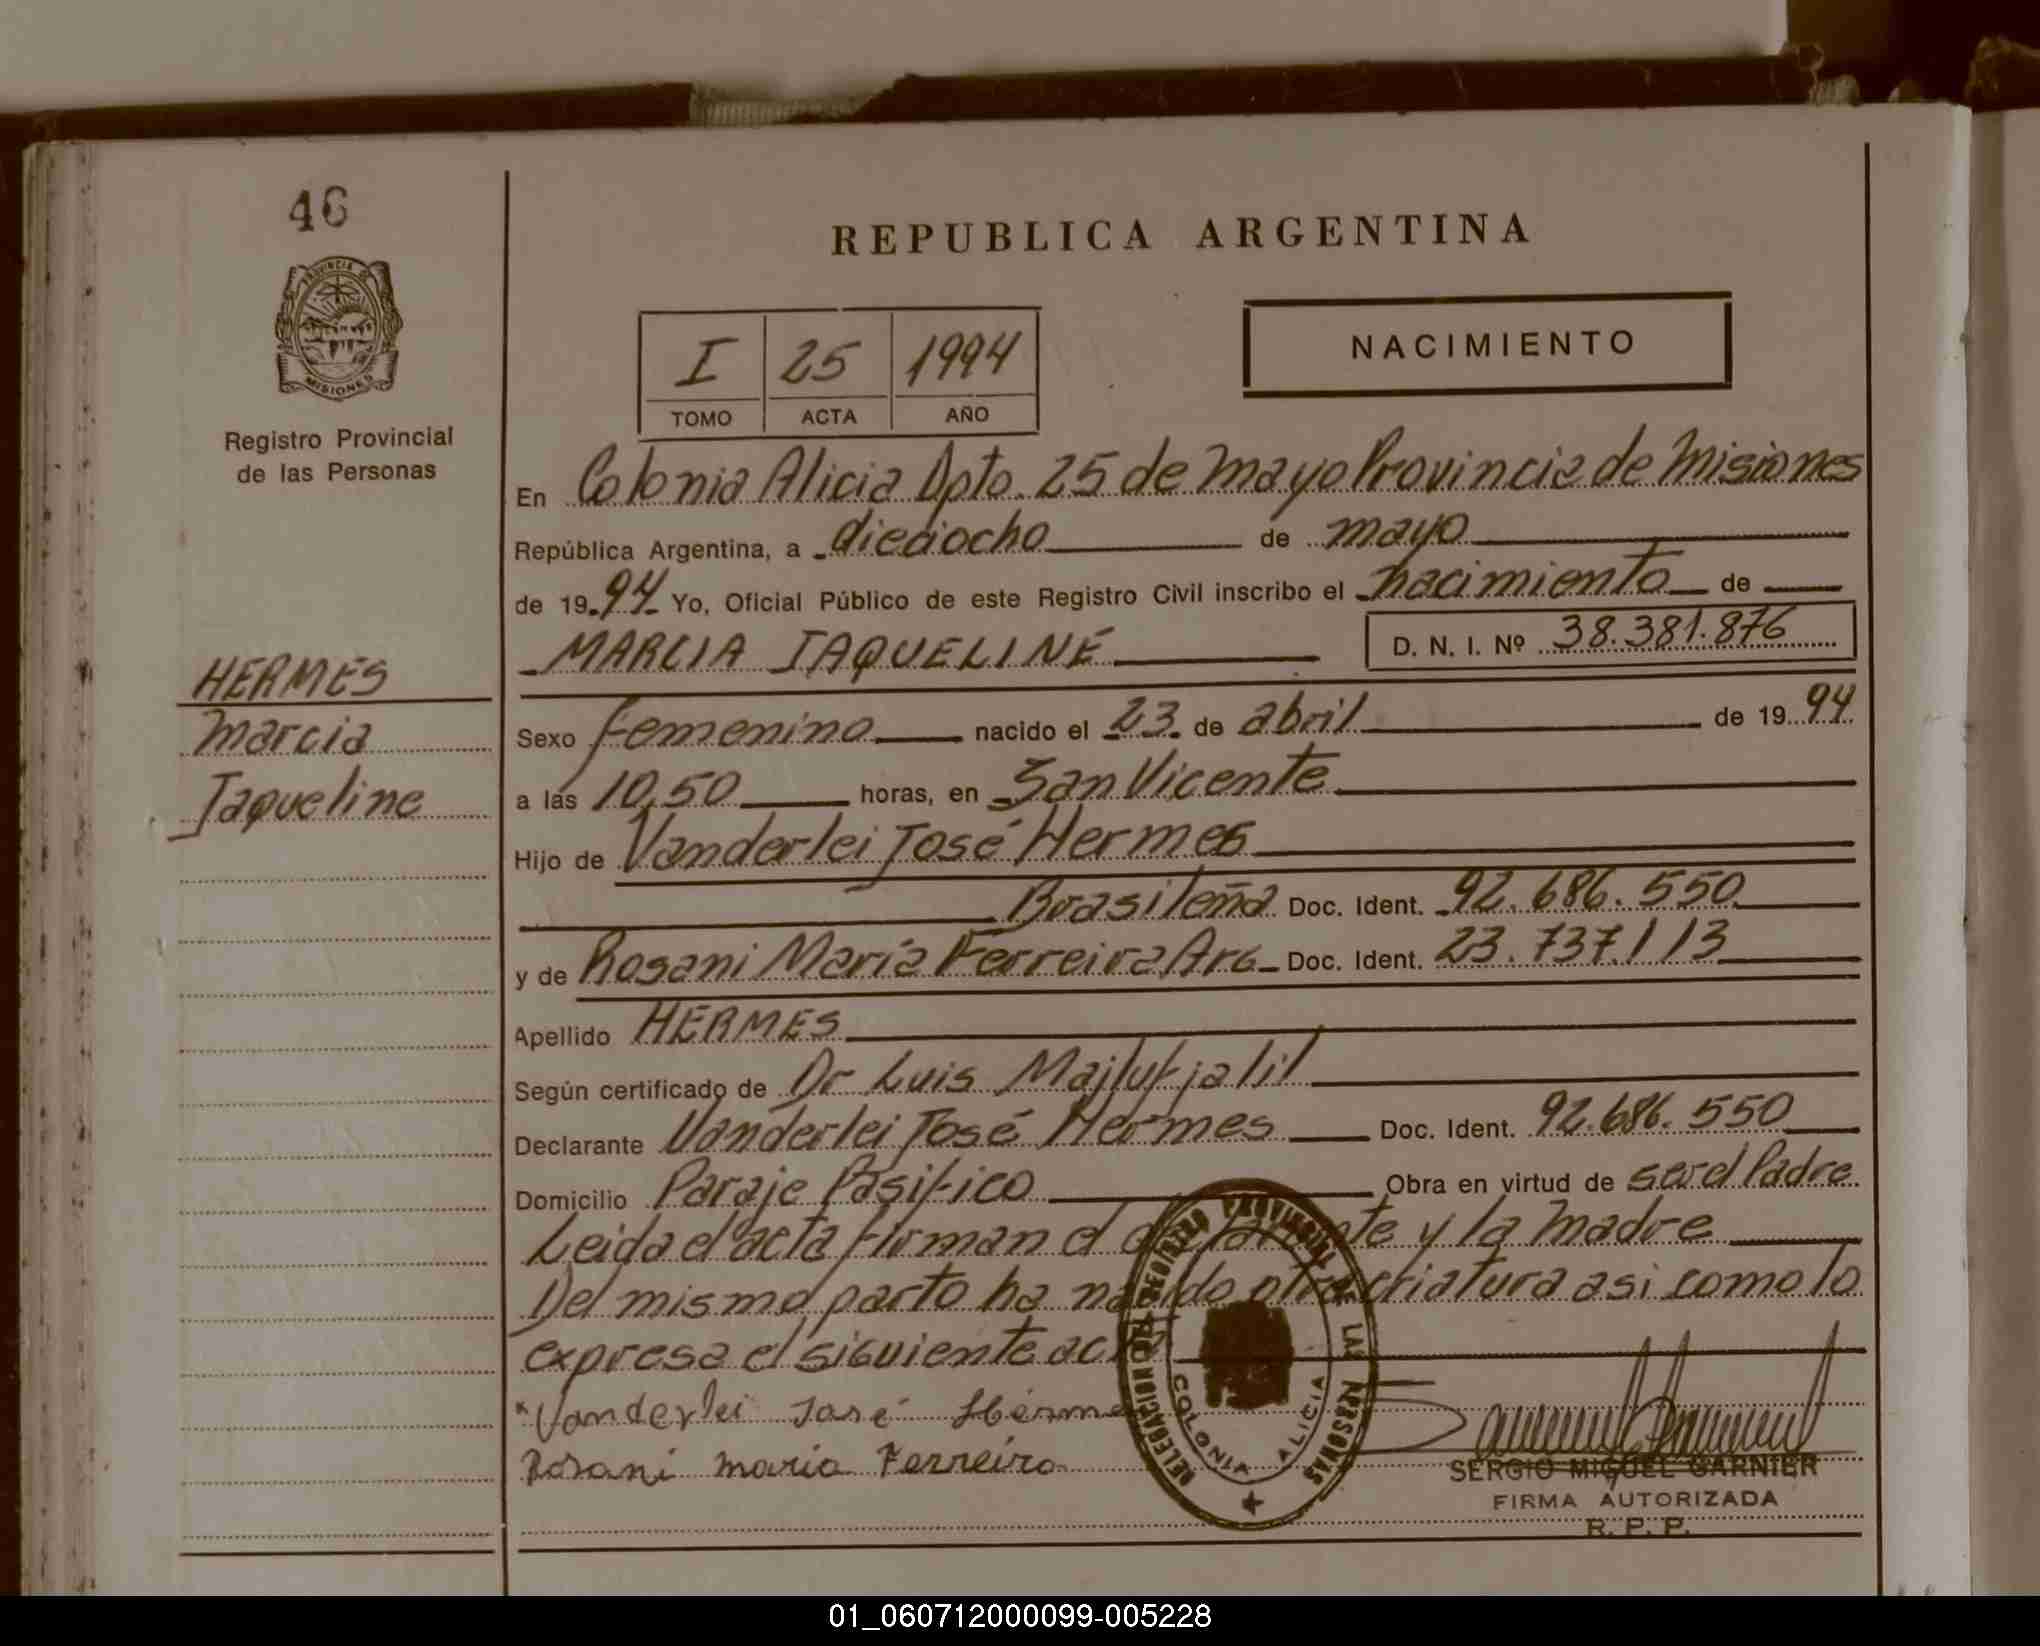 46
REPUBLICA ARGENTINA
PROVINCIA DE
MISIONES
I 25 1994
TOMO ACTA AÑO
NACIMIENTO
Registro Provincial
de las Personas
En Colonia Alicia Dpto. 25 de Mayo Provincia de Misiones
República Argentina, a dieciocho de mayo
de 1994 Yo, Oficial Público de este Registro Civil inscribo el nacimiento de
MARCIA JAQUELINE D. N. I. Nº 38.381.876
HERMES
Marcia
Jaqueline
Sexo Femenino nacido el 23 de abril de 1994
a las 10,50 horas, en San Vicente
Hijo de Vanderlei José Hermes
Brasileña Doc. Ident. 92.686.550
y de Rosani María Ferreira Arg Doc. Ident. 23.737.113
Apellido HERMES
Según certificado de Dr Luis Majluf jalil
Declarante Vanderlei José Hermes Doc. Ident. 92.686.550
Domicilio Paraje Pasifico Obra en virtud de ser el Padre
Leida el acta firman el declarante y la Madre
Del mismo parto ha nacido otra criatura asi como lo
expresa el siguiente acta
Vanderlei José Hermes
Rosani maria Ferreira
DELEGACION DEL REGISTRO PROVINCIAL DE LAS PERSONAS
COLONIA ALICIA
SERGIO MIGUEL GARNIER
FIRMA AUTORIZADA
R. P. P.
01_060712000099-005228